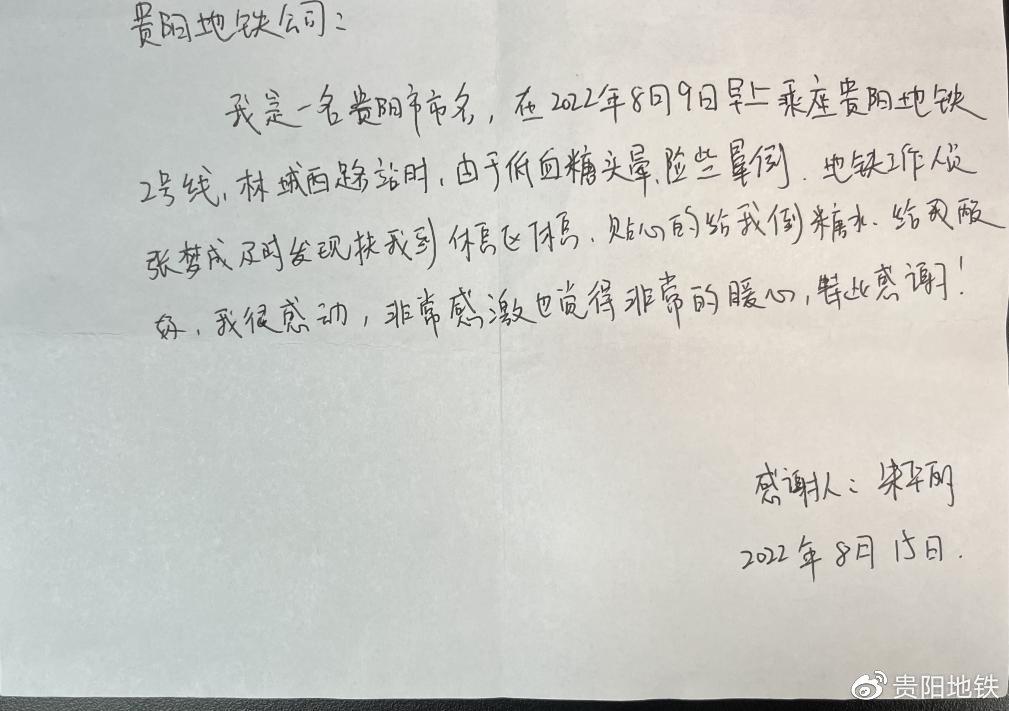 贵阳地铁公司：
我是一名贵阳市市名，在2022年8月9日早上乘座贵阳地铁
2号线，林城西路站时，由于低血糖头晕、险些晕倒．地铁工作人员
张梦成及时发现扶我到休息区休息、贴心的给我倒糖水．给我敷
好、我很感动，非常感激也觉得非常的暖心，特此感谢！
感谢人：宋平丽
2022年8月15日．
贵阳地铁